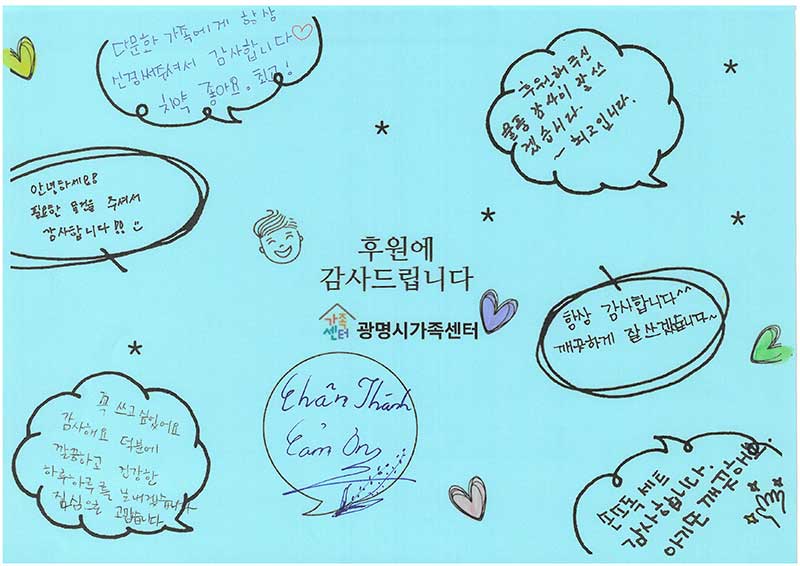 다문화 가족에게 항상
신경써주셔서 감사합니다♡
치약 좋아요. 최고!
후원해주신
물품 감사히 잘 쓰
겠습니다.
~ 최고입니다.
안녕하세요!
필요한 물건을 주셔서
감사합니다!!
후원에
감사드립니다
가족
센터
광명시가족센터
항상 감사합니다^^
깨끗하게 잘 쓰겠습니다~
꼭 쓰고싶었어요
감사해요 덕분에
깔끔하고 건강한
하루하루를 보내겠습니다
진심으로 고맙습니다
Chân Thành
Cảm Ơn
손소독 세트
감사합니다.
아기도 깨끗해요.